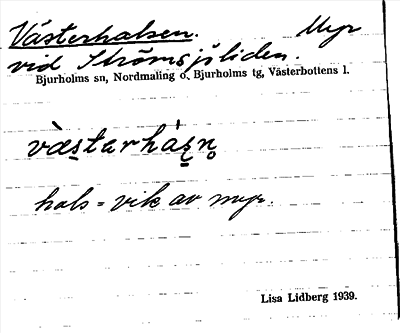 Västerhalsen. Myr
vid Strömsjöliden.
Bjurholms sn, Nordmaling o. Bjurholms tg, Västerbottens l.
væ̀starhàsn̥
hals = vik av myr.
Lisa Lidberg 1939.